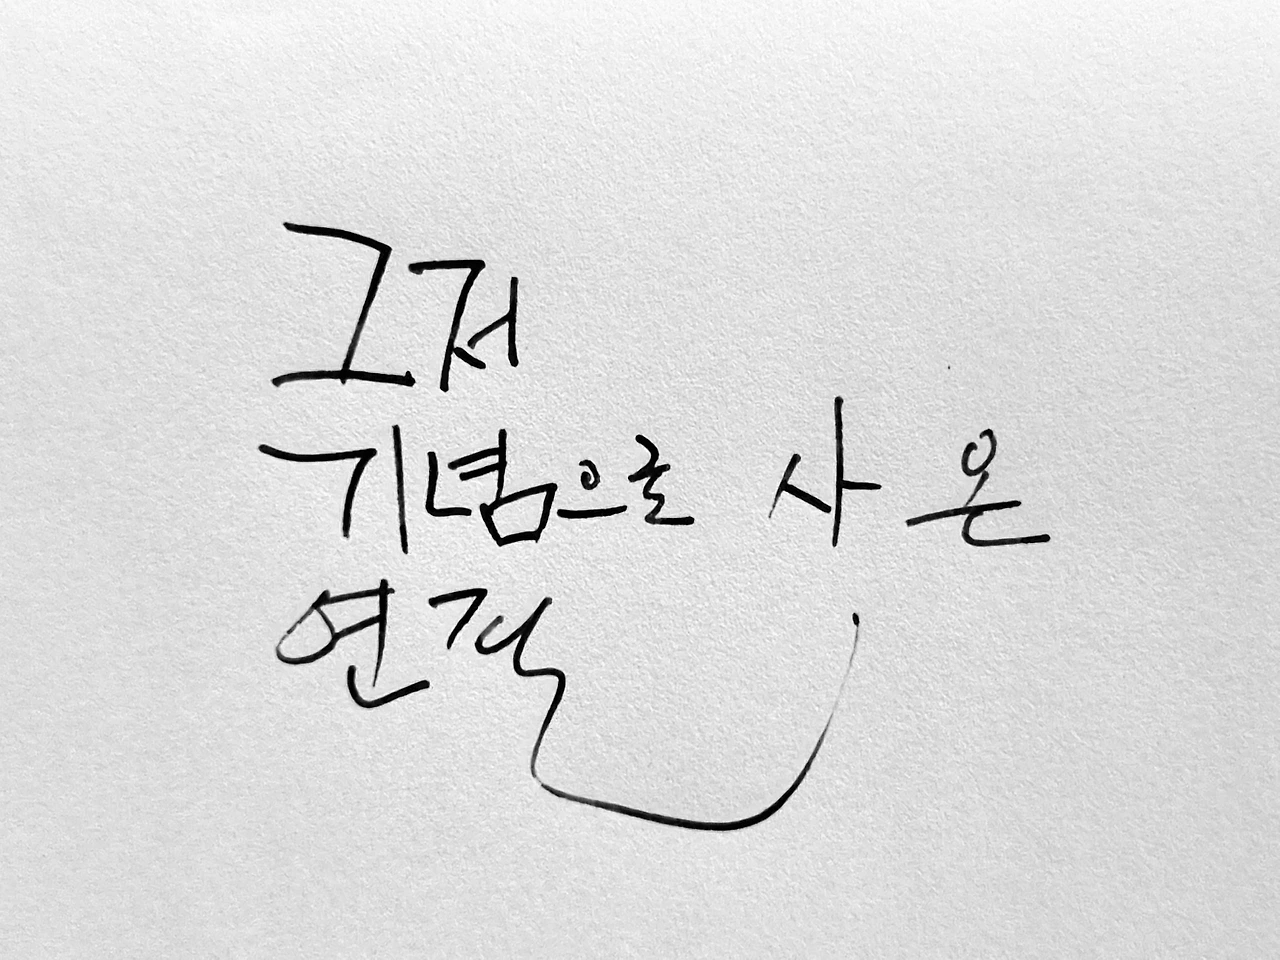 그저
기념으로 사온
연결